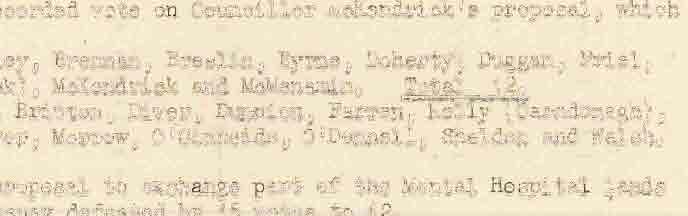 recorded vote on Councillor McKendrick's proposal, which
ey, Brennan, Breslin, Byrne, Doherty, Duggan, Friel,
McKendrick and McMenamin. Total 12.
Britton, Diver, Farren, Kelly (Carndonagh),
Morrow, O'Donnell, Sheldon and Walsh.
proposal to exchange part of the Mental Hospital lands
defeated by 15 votes to 12